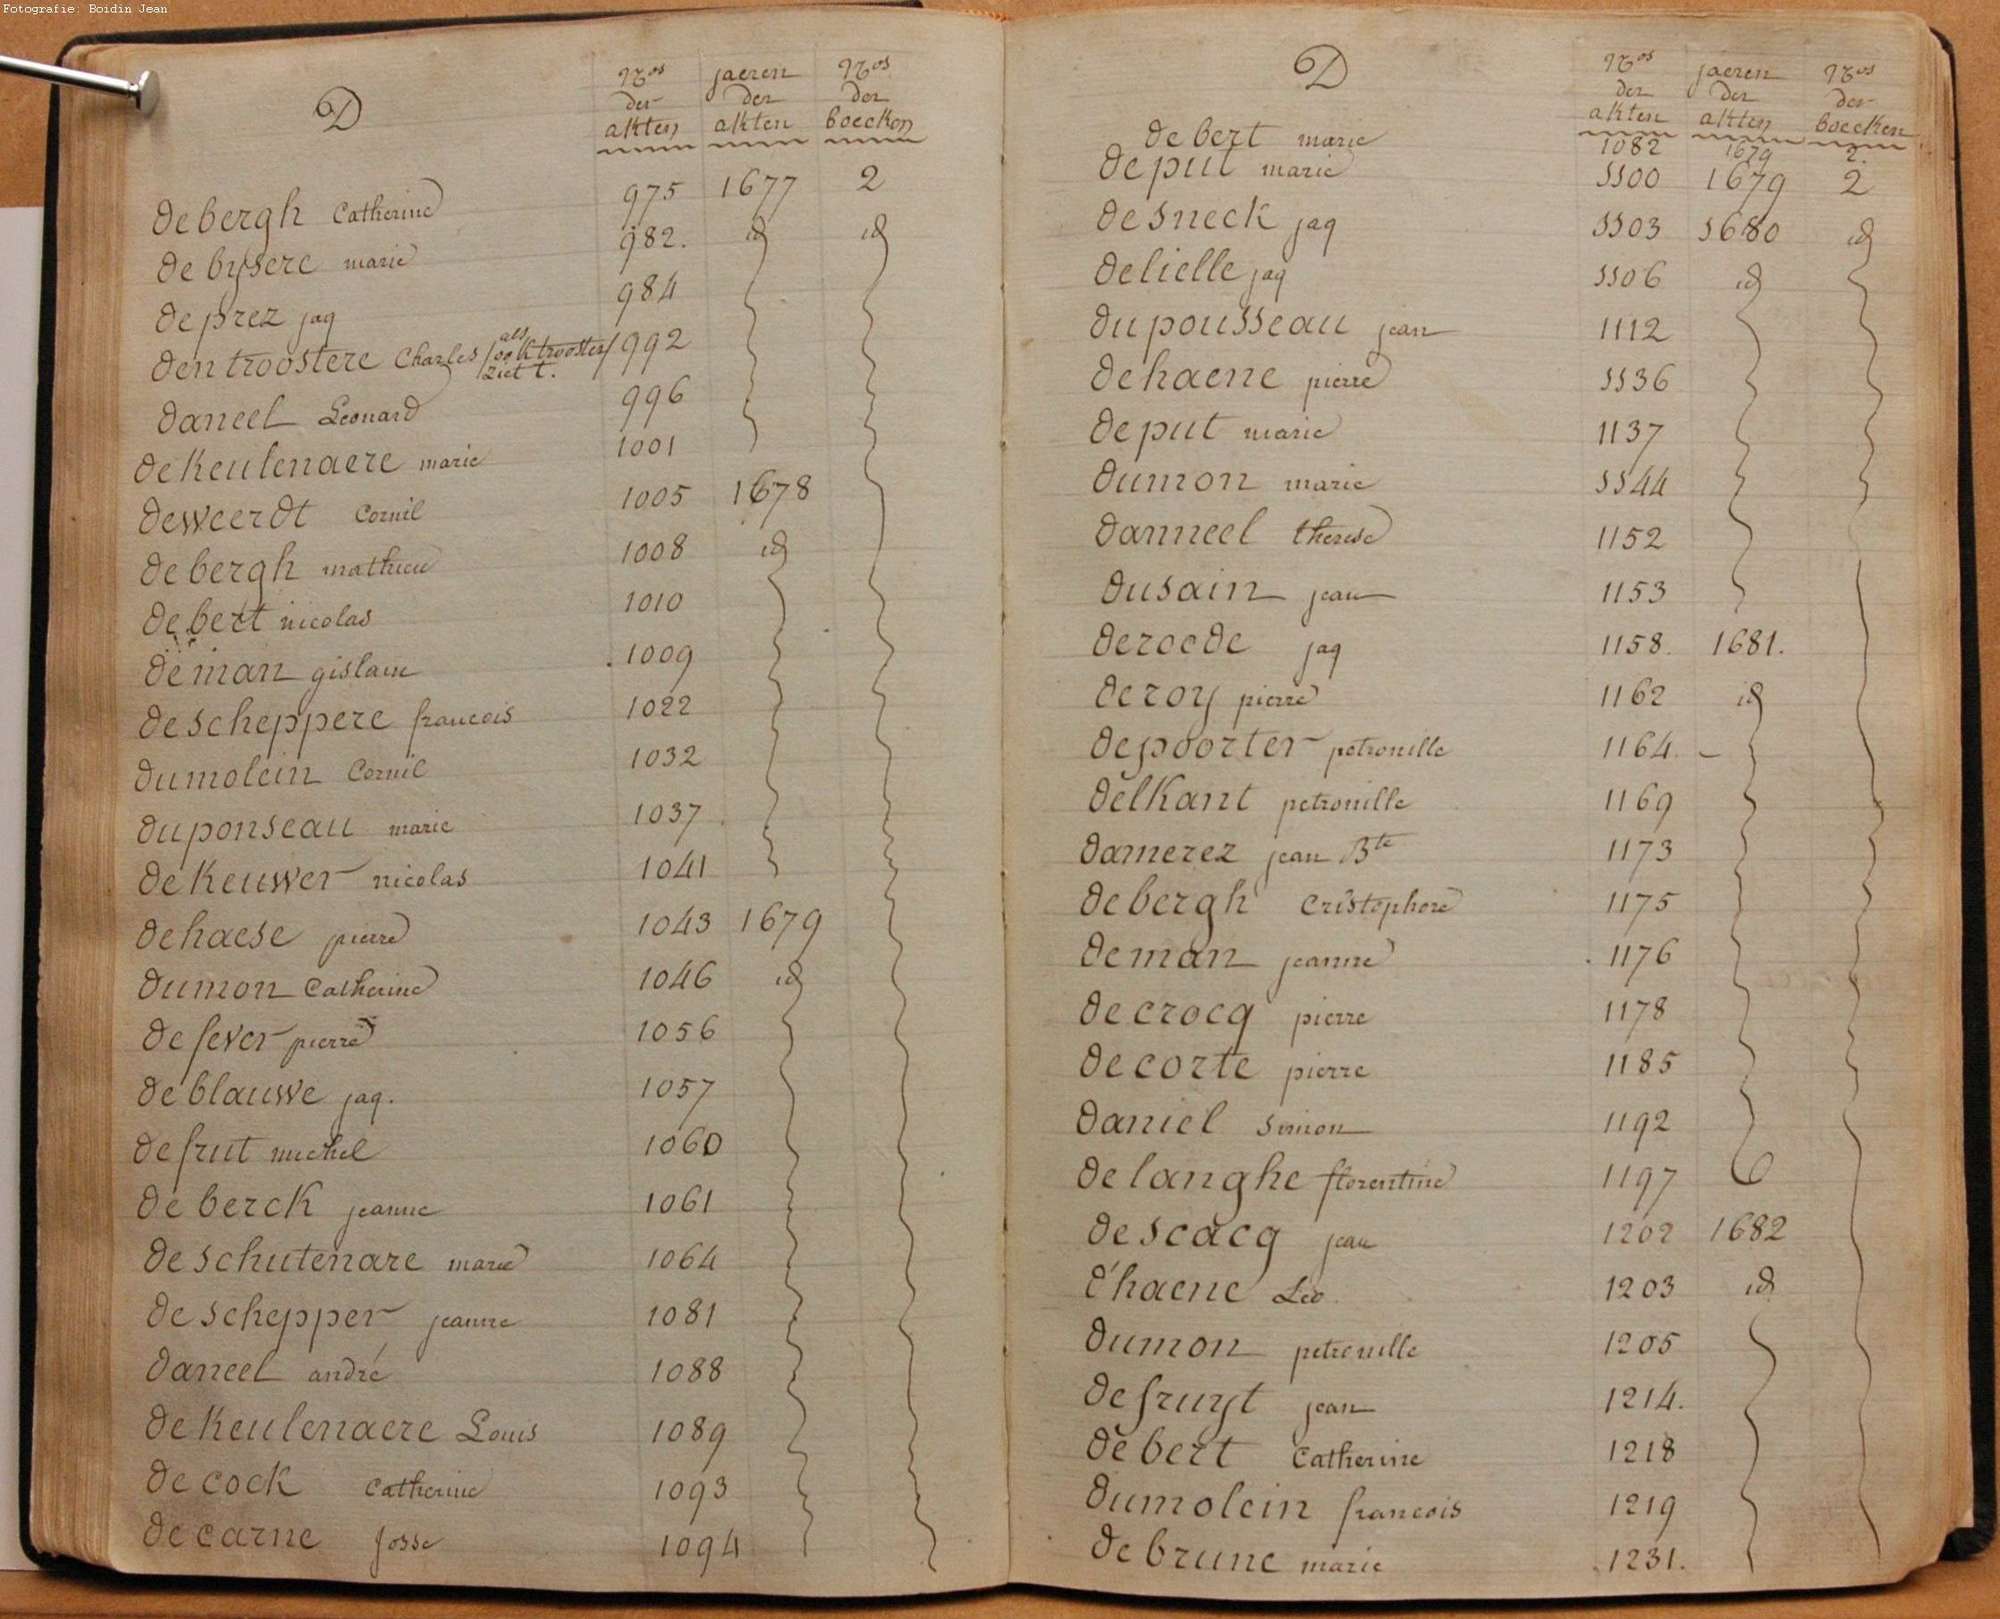 Fotografie: Boidin Jean
D
Nos der akten jaeren der akten Nos der boecken
de bergh Catherine 975 1677 2
de bysere marie 982. id id
de prez jaq 984
den troostere Charles /als ook trooster/ ziet t. 992
daneel Leonard 996
de Keulenaere marie 1001
deweerdt Cornil 1005 1678
de bergh mathieu 1008 id
de bert nicolas 1010
de man gislain 1009
de scheppere francois 1022
dumolein Cornil 1032
duponseau marie 1037
de Keuwer nicolas 1041
de haese pierre 1043 1679
dumon Catherine 1046 id
de fever pierre 1056
de blauwe jaq. 1057
de frut michel 1060
de berck jeanne 1061
de schutenare marie 1064
de schepper jeanne 1081
daneel andré 1088
de Keulenaere Louis 1089
de cock Catherine 1093
de carne Josse 1094
D
Nos der akten jaeren der akten Nos der boecken
de bert marie 1082 1679 2.
de put marie 1100 1679 2
de sneck jaq 1103 1680 id
delielle jaq 1106 id
dupousseau jean 1112
de haene pierre 1136
de put marie 1137
dumon marie 1144
danneel therese 1152
dusain jean 1153
deroede jaq 1158. 1681.
de roy pierre 1162 id
de poorter petronille 1164.
delkant petronille 1169
damerez jean Bte 1173
de bergh Cristophore 1175
de man jeanne 1176
de crocq pierre 1178
de corte pierre 1185
daniel simon 1192
de langhe florentine 1197
de scacq jean 1202 1682
d'haene Leo 1203 id
dumon petronille 1205
de fruyt jean 1214.
de bert Catherine 1218
dumolein francois 1219
de brune marie 1231.